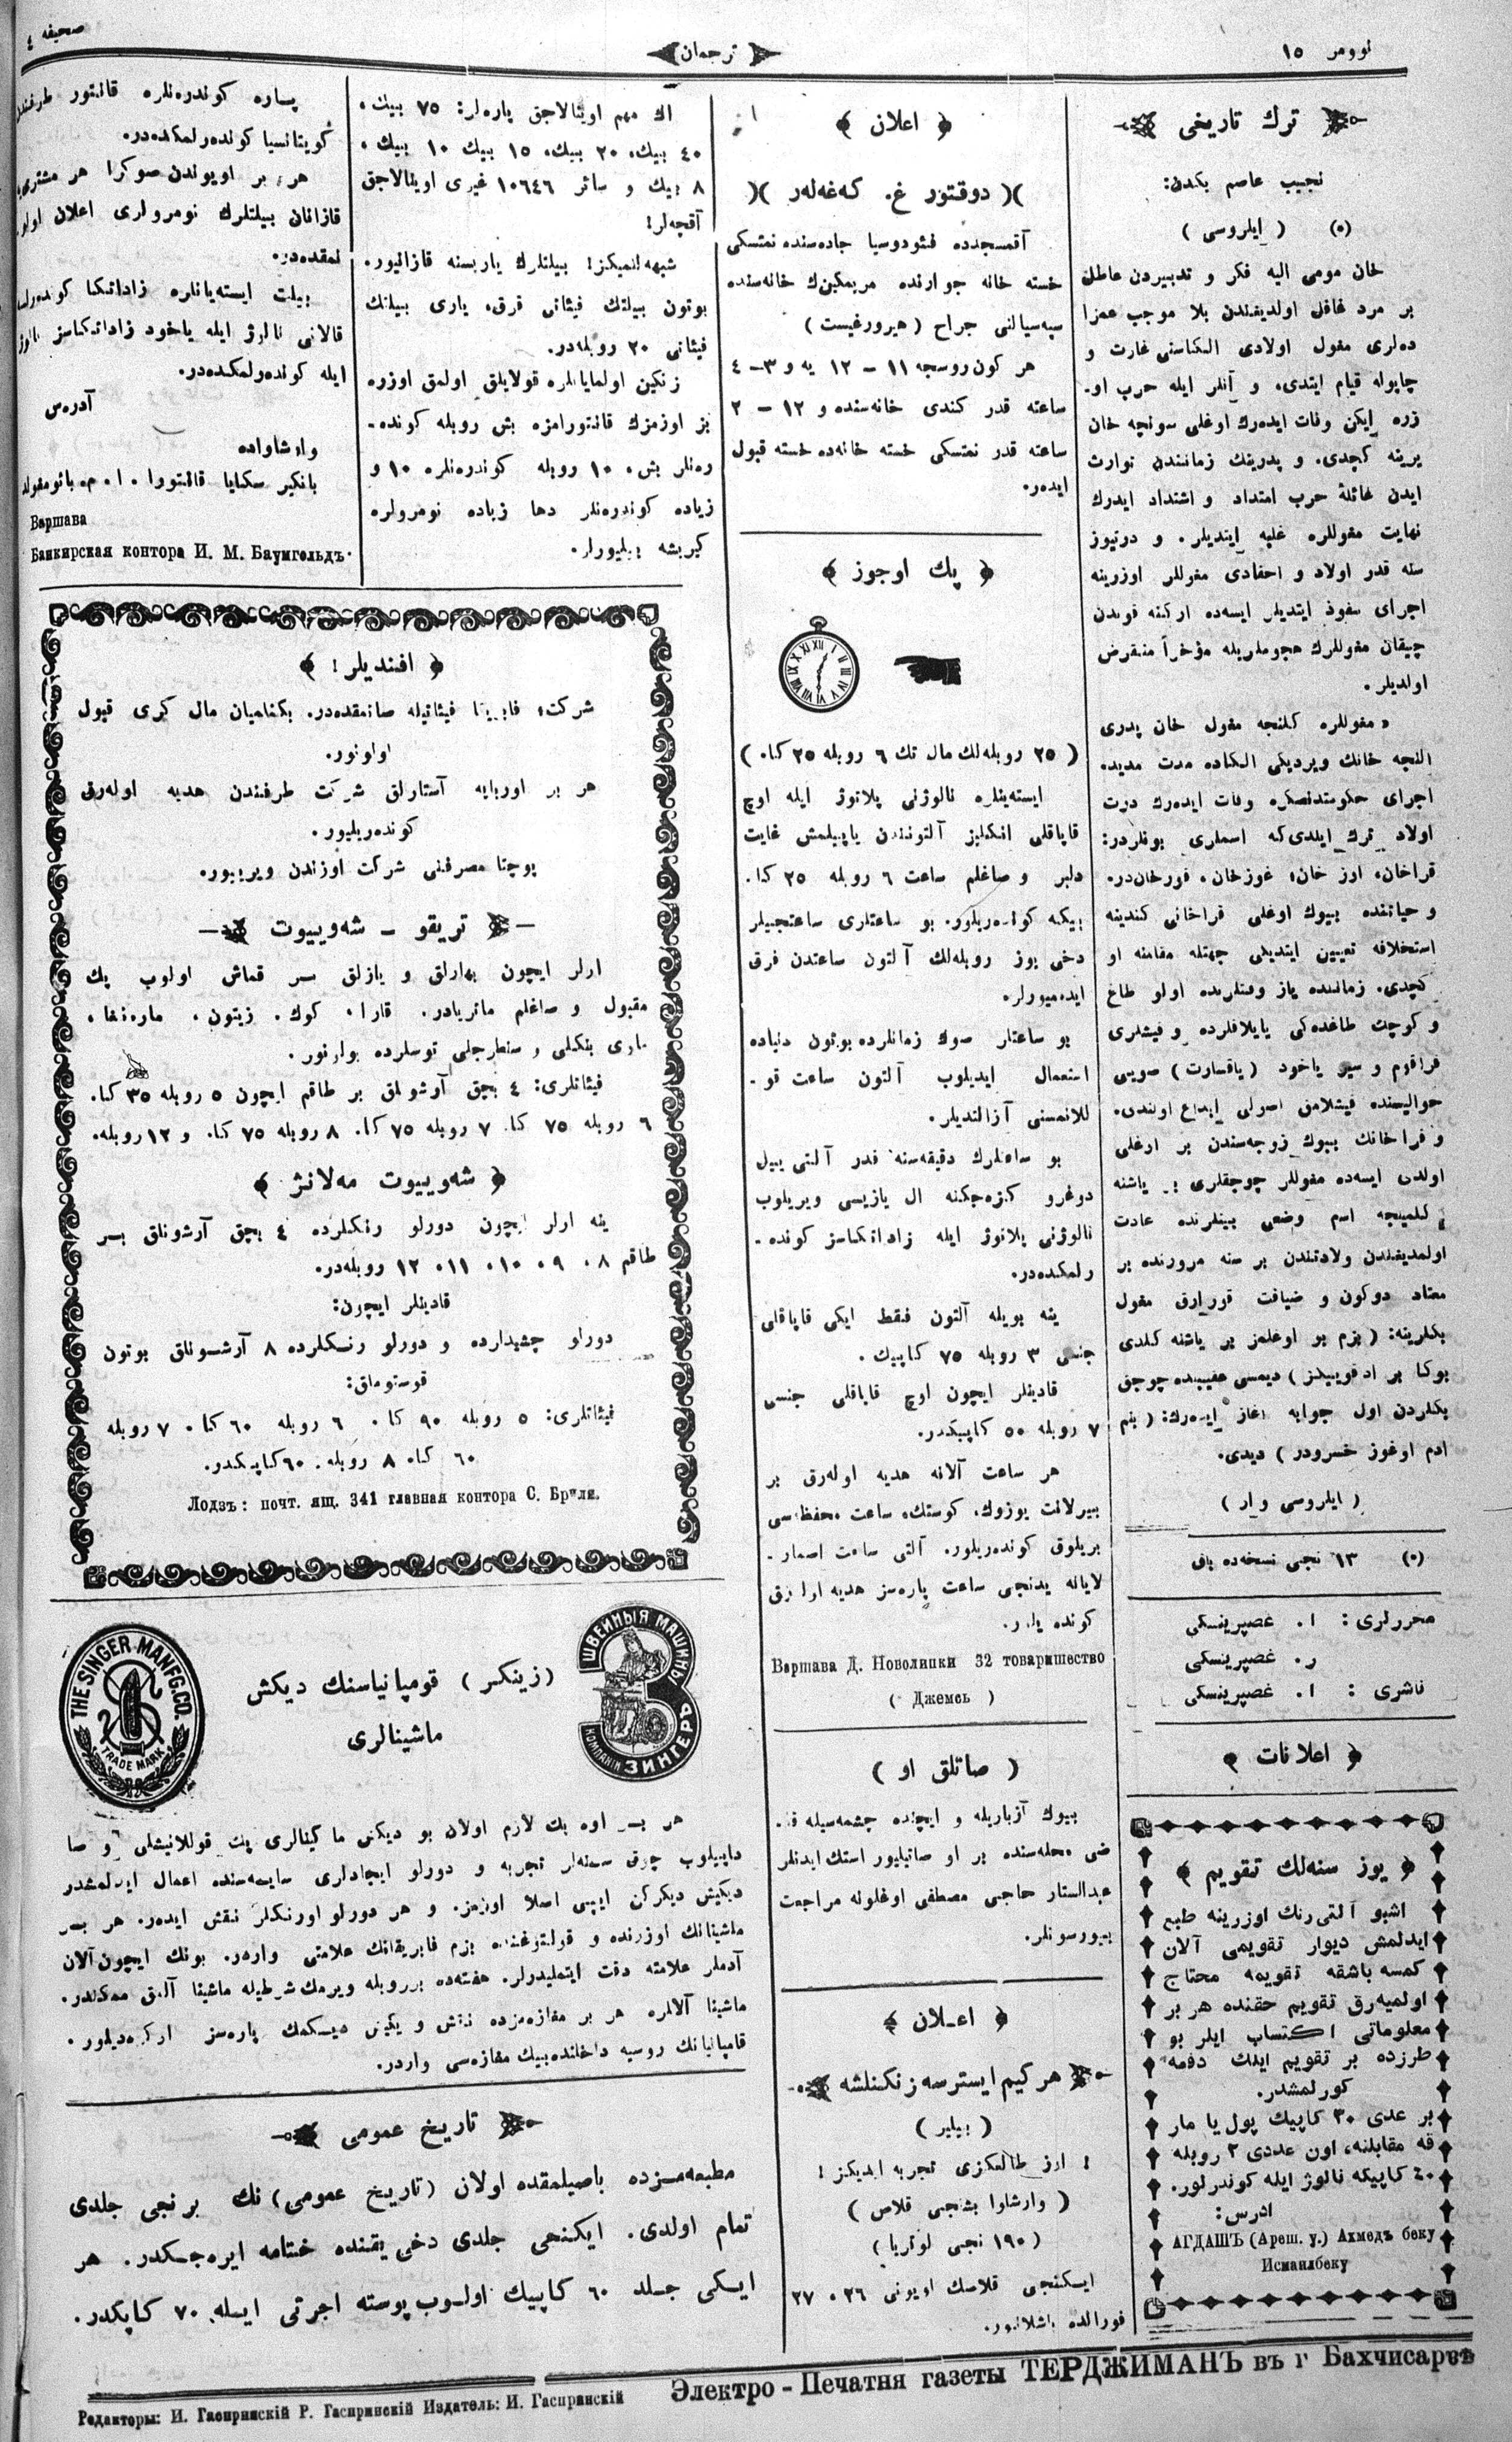 نوومر ١٥
ترجمان
صحيفه ٤
ترك تاريخی
نجيب عاصم بكدن:
(٥) ( ايلروسی )
خان مومی اليه فكر و تدبيردن عاطل
بر مرد غافل اولديغندن بلا موجب عمزا
ده‌لری مغول اولادی الكاسنی غارت و
چاپوله قيام ايتدی، و آنلر ايله حرب او-
زره ايكن وفات ايده‌رك اوغلی سونجه خان
يرينه كچدی. و پدرينك زماننندن توارث
ايدن غائلهٔ حرب امتداد و اشتداد ايدرك
نهايت مغوللره غلبه ايتديلر. و درتيوز
سنه قدر اولاد و احفادی مغوللر اوزرينه
اجرای نفوذ ايتديلر ايسه‌ده اركنه قوندن
چيقان مغوللرك هجوملريله مؤخراً منقرض
اولديلر.
مغوللره كلنجه مغول خان پدری
النجه خانك ويرديكی الكاده مدت مديده
اجرای حكومتدنصكره وفات ايده‌رك درت
اولاد ترك ايلدی‌كه اسملری بونلردر:
قراخان، ارز خان، غوزخان، قورخان‌در.
و حياتنده بيوك اوغلی قراخانی كندينه
استخلافه تعيين ايتديكی جهتله مقامنه او
كچدی. زماننده ياز وقتلرنده اولو طاغ
و كوچك طاغده‌كی يايلاقلرده و قيشلری
قراقوم و سير ياخود ( ياقسارت ) صويی
حواليسنده قيشلامق اصولی ابداع اولندی.
و قراخانك بيوك زوجه‌سندن بر اوغلی
اولدی ايسه‌ده مغوللر چوجقلری بر ياشنه
كلمينجه اسم وضعی بينلرنده عادت
اولمديغندن ولادتندن بر سنه مرورنده بر
معتاد دوكون و ضيافت قورارق مغول
بكلرينه: ( بزم بو اوغلمز بر ياشنه كلدی
بوكا بر اد قوييكز ) ديمسی عقيبنده چوجق
بكلردن اول جوابه آغاز ايده‌رك: ( بنم
ادم اوغوز خسرودر ) ديدی.
( ايلروسی وار )
(٥) ١٣ نجی نسخه‌ده باق
محررلری: ا. غصپرينسكی
ر. غصپرينسكی
ناشری: ا. غصپرينسكی
اعلانات
يوز سنه‌لك تقويم
اشبو آلتی رنك اوزرينه طبع
ايدلمش ديوار تقويمی آلان
كمسه باشقه تقويمه محتاج
اولميه‌رق تقويم حقنده هر بر
معلوماتی اكتساب ايلر بو
طرزده بر تقويم ايلك دفعه
كورلمشدر.
بر عددی ٣٠ كاپيك پول يا مار
قه مقابلنه، اون عددی ٢ روبله
٤٠ كاپيكه نالوژ ايله كوندرلور.
ادرس:
АГДАШЪ (Ареш. у.) Ахмедъ беку
Исмаилбеку
اعلان
)( دوقتور غ. كه‌غه‌له‌ر )(
آقمسجدده فئودوسيا جاده‌سنده نمتسكی
خسته خانه جوارنده مريمكين‌ك خانه‌سنده
سپه‌سيالنی جراح ( هيرورغيست )
هر كون روسجه ١١ – ١٢ يه و ٣ – ٤
ساعته قدر كندی خانه‌سنده و ١٢ – ٢
ساعته قدر نمتسكی خسته خانه‌ده خسته قبول
ايده‌ر.
پك اوجوز
( ٢٥ روبله‌لك مال تك ٦ روبله ٢٥ كا. )
ايسته‌ينلره نالوژنی پلاتوژ ايله اوچ
قاپاقلی انكليز آلتونندن ياپيلمش غايت
دلبر و صاغلم ساعت ٦ روبله ٢٥ كا.
بيكه كونده‌ريلور. بو ساعتلری ساعتجيلر
دخی يوز روبله‌لك آلتون ساعتدن فرق
ايده‌ميورلر.
بو ساعتلر صوك زمانلرده بوتون دنياده
استعمال ايديلوب آلتون ساعت قو-
للانمسنی آزالتديلر.
بو ساعتلرك دقيقه‌سنه قدر آلتی ييل
دوغرو كزه‌جكنه ال يازيسی ويريلوب
نالوژنی پلاتوژ ايله زاداتكاسز كونده-
رلمكده‌در.
ينه بويله آلتون فقط ايكی قاپاقلی
جنسی ٣ روبله ٧٥ كاپيك.
قادينلر ايچون اوچ قاپاقلی جنسی
٧ روبله ٥٠ كاپيكدر.
هر ساعت آلانه هديه اوله‌رق بر
بيرلانت يوزوك، كوستك، ساعت محفظه‌سی
بريلوق كونده‌ريلور. آلتی ساعت اسمار-
لايانه يدنجی ساعت پاره‌سز هديه اوله‌رق
Варшава Д. Новолипки 32 товарищество
( Джемсь )
( صاتلق او )
بيوك آزباريله و ايچنده چشمه‌سيله قا-
ضی محله‌سنده بر او صاتيليور استك ايدنلر
عبدالستار حاجی مصطفی اوغلونه مراجعت
بيورسونلر.
اعلان
هركيم ايسترسه زنكنلشه
( بيلير )
! ارز طالعكزی تجربه ايديكز !
( وارشاوا بشنجی قلاص )
( ١٩٠ نجی لوتريا )
ايكنجی قلاصك اويونی ٢٦، ٢٧
فورالده باشلانيور.
اك مهم اوينالاجق پاره‌لر: ٧٥ بيك،
٤٠ بيك، ٢٠ بيك، ١٥ بيك ١٠ بيك،
٨ بيك و سائر ١٠٦٤٦ غيری اوينالاجق
آقچه‌لر!
شبهه ايتميكز! بيلتلرك ياريسنه قازانيور.
بوتون بيلتك فيئاتی قرق، ياری بيلتك
فيئاتی ٢٠ روبله‌در.
زنكين اولمايانلره قولايلق اولمق اوزره
بز اوزمزك قانتورامزه بش روبله كونده-
ره‌نلر بش، ١٠ روبله كوندره‌نلره ١٠ و
زياده كوندره‌نلر دها زياده نومرولره
كيريشه بيليورلر.
پساره كوندره‌نلره قانتور طرفندن
كويتانسيا كونده‌رلمكده‌در.
هر بر اويوندن صوكرا هر مشتری‌يه
قازانان بيلتلرك نومرولری اعلان اولو-
نمقده‌در.
بيلت ايسته‌يانلره زاداتكا كونده‌رلسه
قالانی نالوژ ايله ياخود زاداتكاسز نالوژ
ايله كونده‌رلمكده‌در.
آدره‌س
وارشاواده
بانكير سكايا قانتورا. ا. م. بائومغولد
Варшава
Банкирская контора И. М. Баумгольдъ.
افنديلر!
شركت، فابريقا فيئاتيله صاتمقده‌در. بكنلميان مال كری قبول
اولونور.
هر بر اوربايه آستارلق شركت طرفندن هديه اوله‌رق
كونده‌ريليور.
پوچتا مصرفنی شركت اوزندن ويرييور.
تريقو – شه‌وييوت
ارلر ايچون بهارلق و يازلق بر قماش اولوب پك
مقبول و صاغلم ماتريادر. قارا، كوك، زيتون،
فيئاتلری: ٤ بچق آرشونلق بر طاقم ايچون ٥ روبله ٣٥ كا.
٦ روبله ٧٥ كا. ٧ روبله ٧٥ كا. ٨ روبله ٧٥ كا. و ١٢ روبله.
شه‌وييوت مه‌لانژ
ينه ارلر ايچون دورلو رنكلرده ٤ بچق آرشونلق بر
طاقم ٨، ٩، ١٠، ١١، ١٢ روبله‌در.
قادينلر ايچون:
دورلو چشيدلرده و دورلو رنكلرده ٨ آرشونلق بوتون
قوستوملق:
فيئاتلری: ٥ روبله ٩٠ كا. ٦ روبله ٦٠ كا. ٧ روبله
٦٠ كا. ٨ روبله. ٦٠ كاپيكدر.
Лодзъ: почт. ящ. 341 главная контора С. Бриля.
THE SINGER MANFG. CO.
TRADE MARK
ШВЕЙНЫЯ МАШИНЫ
КОМПАНІИ ЗИНГЕРЪ
( زينكر ) قومپانياسنك ديكش
ماشينالری
هر بر اوه پك لازم اولان بو ديكش ماكينالری پك قوللانيشلی و صا
داپيلوب چوق سنه‌لر تجربه و دورلو ايجادلری سايه‌سنده اعمال ايدلمشدر
ديكيش ديكركن ايپی اصلا اوزيمز. و هر دورلو اورنكلر نقش ايده‌ر. هر بر
ماشينانك اوزرنده و قولتوغنده بزم فابريقانك علامتی وارده‌ر. بونك ايچون آلان
آدملر علامته دقت ايتمليدرلر. هفته‌ده بر روبله ويرمك شرطيله ماشينا آلمق ممكندر.
ماشينا آلانلره هر بر مغازه‌مزده نقش و يكيش ديكمك پاره‌سز اوكره‌ديليور.
قامپانيانك روسيه داخلنده بيك مغازه‌سی واردر.
تاريخ عمومی
مطبعه‌مزده باصيلمقده اولان (تاريخ عمومی) نك برنجی جلدی
تمام اولدی. ايكنجی جلدی دخی يقنده ختامه ايره‌جكدر. هر
ايكی جلد ٦٠ كاپيك اولوب پوسته اجرتی ايله ٧٠ كاپكدر.
Редакторы: И. Гаспринскій Р. Гаспринскій Издатель: И. Гаспринскій
Электро-Печатня газеты ТЕРДЖИМАНЪ въ г Бахчисараѣ